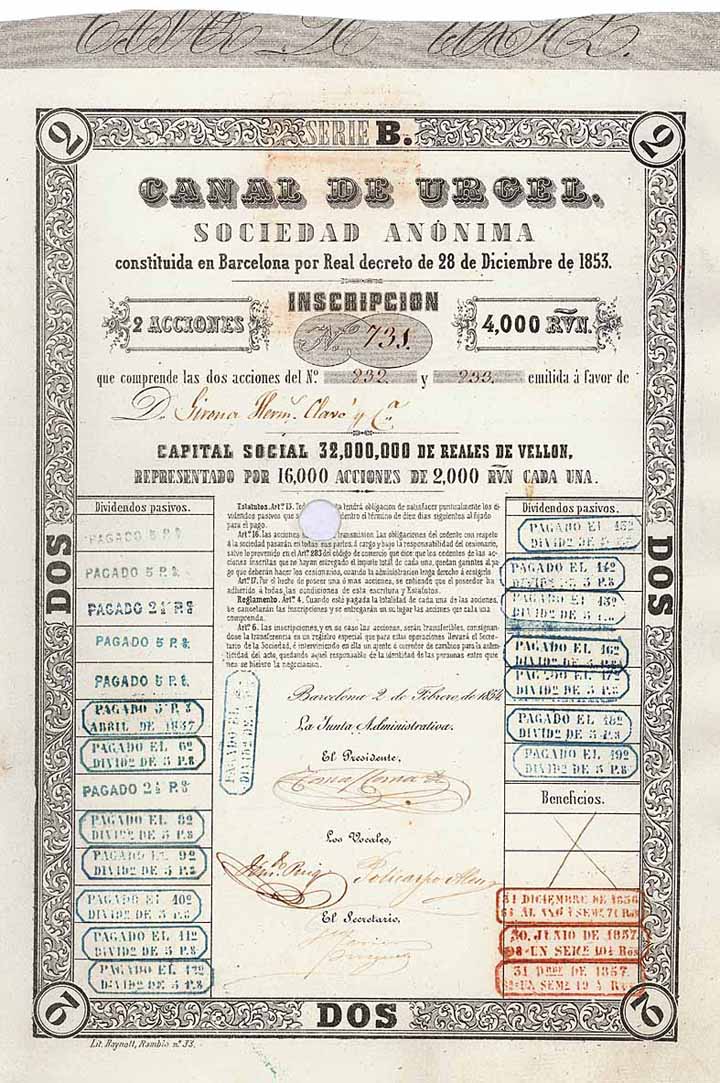 2
SERIE B.
2
CANAL DE URGEL.
SOCIEDAD ANÓNIMA
constituida en Barcelona por Real decreto de 28 de Diciembre de 1853.
INSCRIPCION
2 ACCIONES
Nº 731.
4,000 RVN.
que comprende las dos acciones del Nº 232. y 233. emitida á favor de
D. Girona Herms. Clavé y Ca.
CAPITAL SOCIAL 32,000,000 DE REALES DE VELLON,
REPRESENTADO POR 16,000 ACCIONES DE 2,000 RVN CADA UNA.
Dividendos pasivos.
PAGADO 5 P.8
PAGADO 5 P.8
PAGADO 2½ P.8
PAGADO 5 P.8
PAGADO 5 P.8
PAGADO 5 P.8
ABRIL DE 1857
PAGADO EL 6º
DIVIDº DE 5 P.8
PAGADO 2½ P.8
PAGADO EL 8º
DIVIDº DE 5 P.8
PAGADO EL 9º
DIVIDº DE 5 P.8
PAGADO EL 10º
DIVIDº DE 5 P.8
PAGADO EL 11º
DIVIDº DE 5 P.8
PAGADO EL
DIVIDº DE 5 P.8
DOS
Estatutos. Art.º 15. tendrá obligacion de satisfacer puntualmente los di-
videndos pasivos que dentro el término de diez dias siguientes al fijado
para el pago.
Art.º 16. Las acciones transmision. Las obligaciones del cedente con respeto
á la sociedad pasarán en todas sus partes á cargo y bajo la responsabilidad del cesionario,
salvo lo prevenido en el Art.º 283 del código de comercio que dice que los cedentes de las ac-
ciones inscritas que no hayan entregado el importe total de cada una, quedan garantes al pa-
go que deberán hacer los cesionarios, cuando la administracion tenga derecho á exigirlo
Art.º 17. Por el hecho de poseer una ó mas acciones, se entiende que el poseedor ha
adherido á todas las condiciones de esta escritura y Estatutos.
Reglamento. Art.º 4. Cuando esté pagada la totalidad de cada una de las acciones,
se cancelarán las inscripciones y se entregarán en su lugar las acciones que cada una
comprenda.
Art.º 6. Las inscripciones, y en su caso las acciones, serán transferibles, consignan-
dose la transferencia en un registro especial que para estas operaciones llevará el Secre-
tario de la Sociedad, é interviniendo en ella un ajente ó corredor de cambios para la auten-
ticidad del acto, quedando aquel responsable de la identidad de las personas entre quie-
nes se hiciere la negociacion.
PAGADO EL
DIVIDº DE 5 P.8
Barcelona 2 de Febrero, de 1854.
La Junta Administrativa.
El Presidente,
Los Vocales,
Puig
Policarpo
El Secretario,
Dividendos pasivos.
PAGADO EL
DIVIDº DE 5 P.8
PAGADO EL 14º
DIVIDº DE 5 P.8
PAGADO EL
DIVIDº DE 5 P.8
PAGADO EL 16º
DIVIDº DE 5 P.8
PAGADO EL 17º
DIVIDº DE 5 P.8
PAGADO EL 18º
DIVIDº DE 5 P.8
PAGADO EL 19º
DIVIDº DE 5 P.8
Beneficios.
31 DICIEMBRE DE 1856
30. JUNIO DE 1857
31 DBRE DE 1857.
DOS
2
DOS
2
Lit. Raynolt, Rambla nº 33.